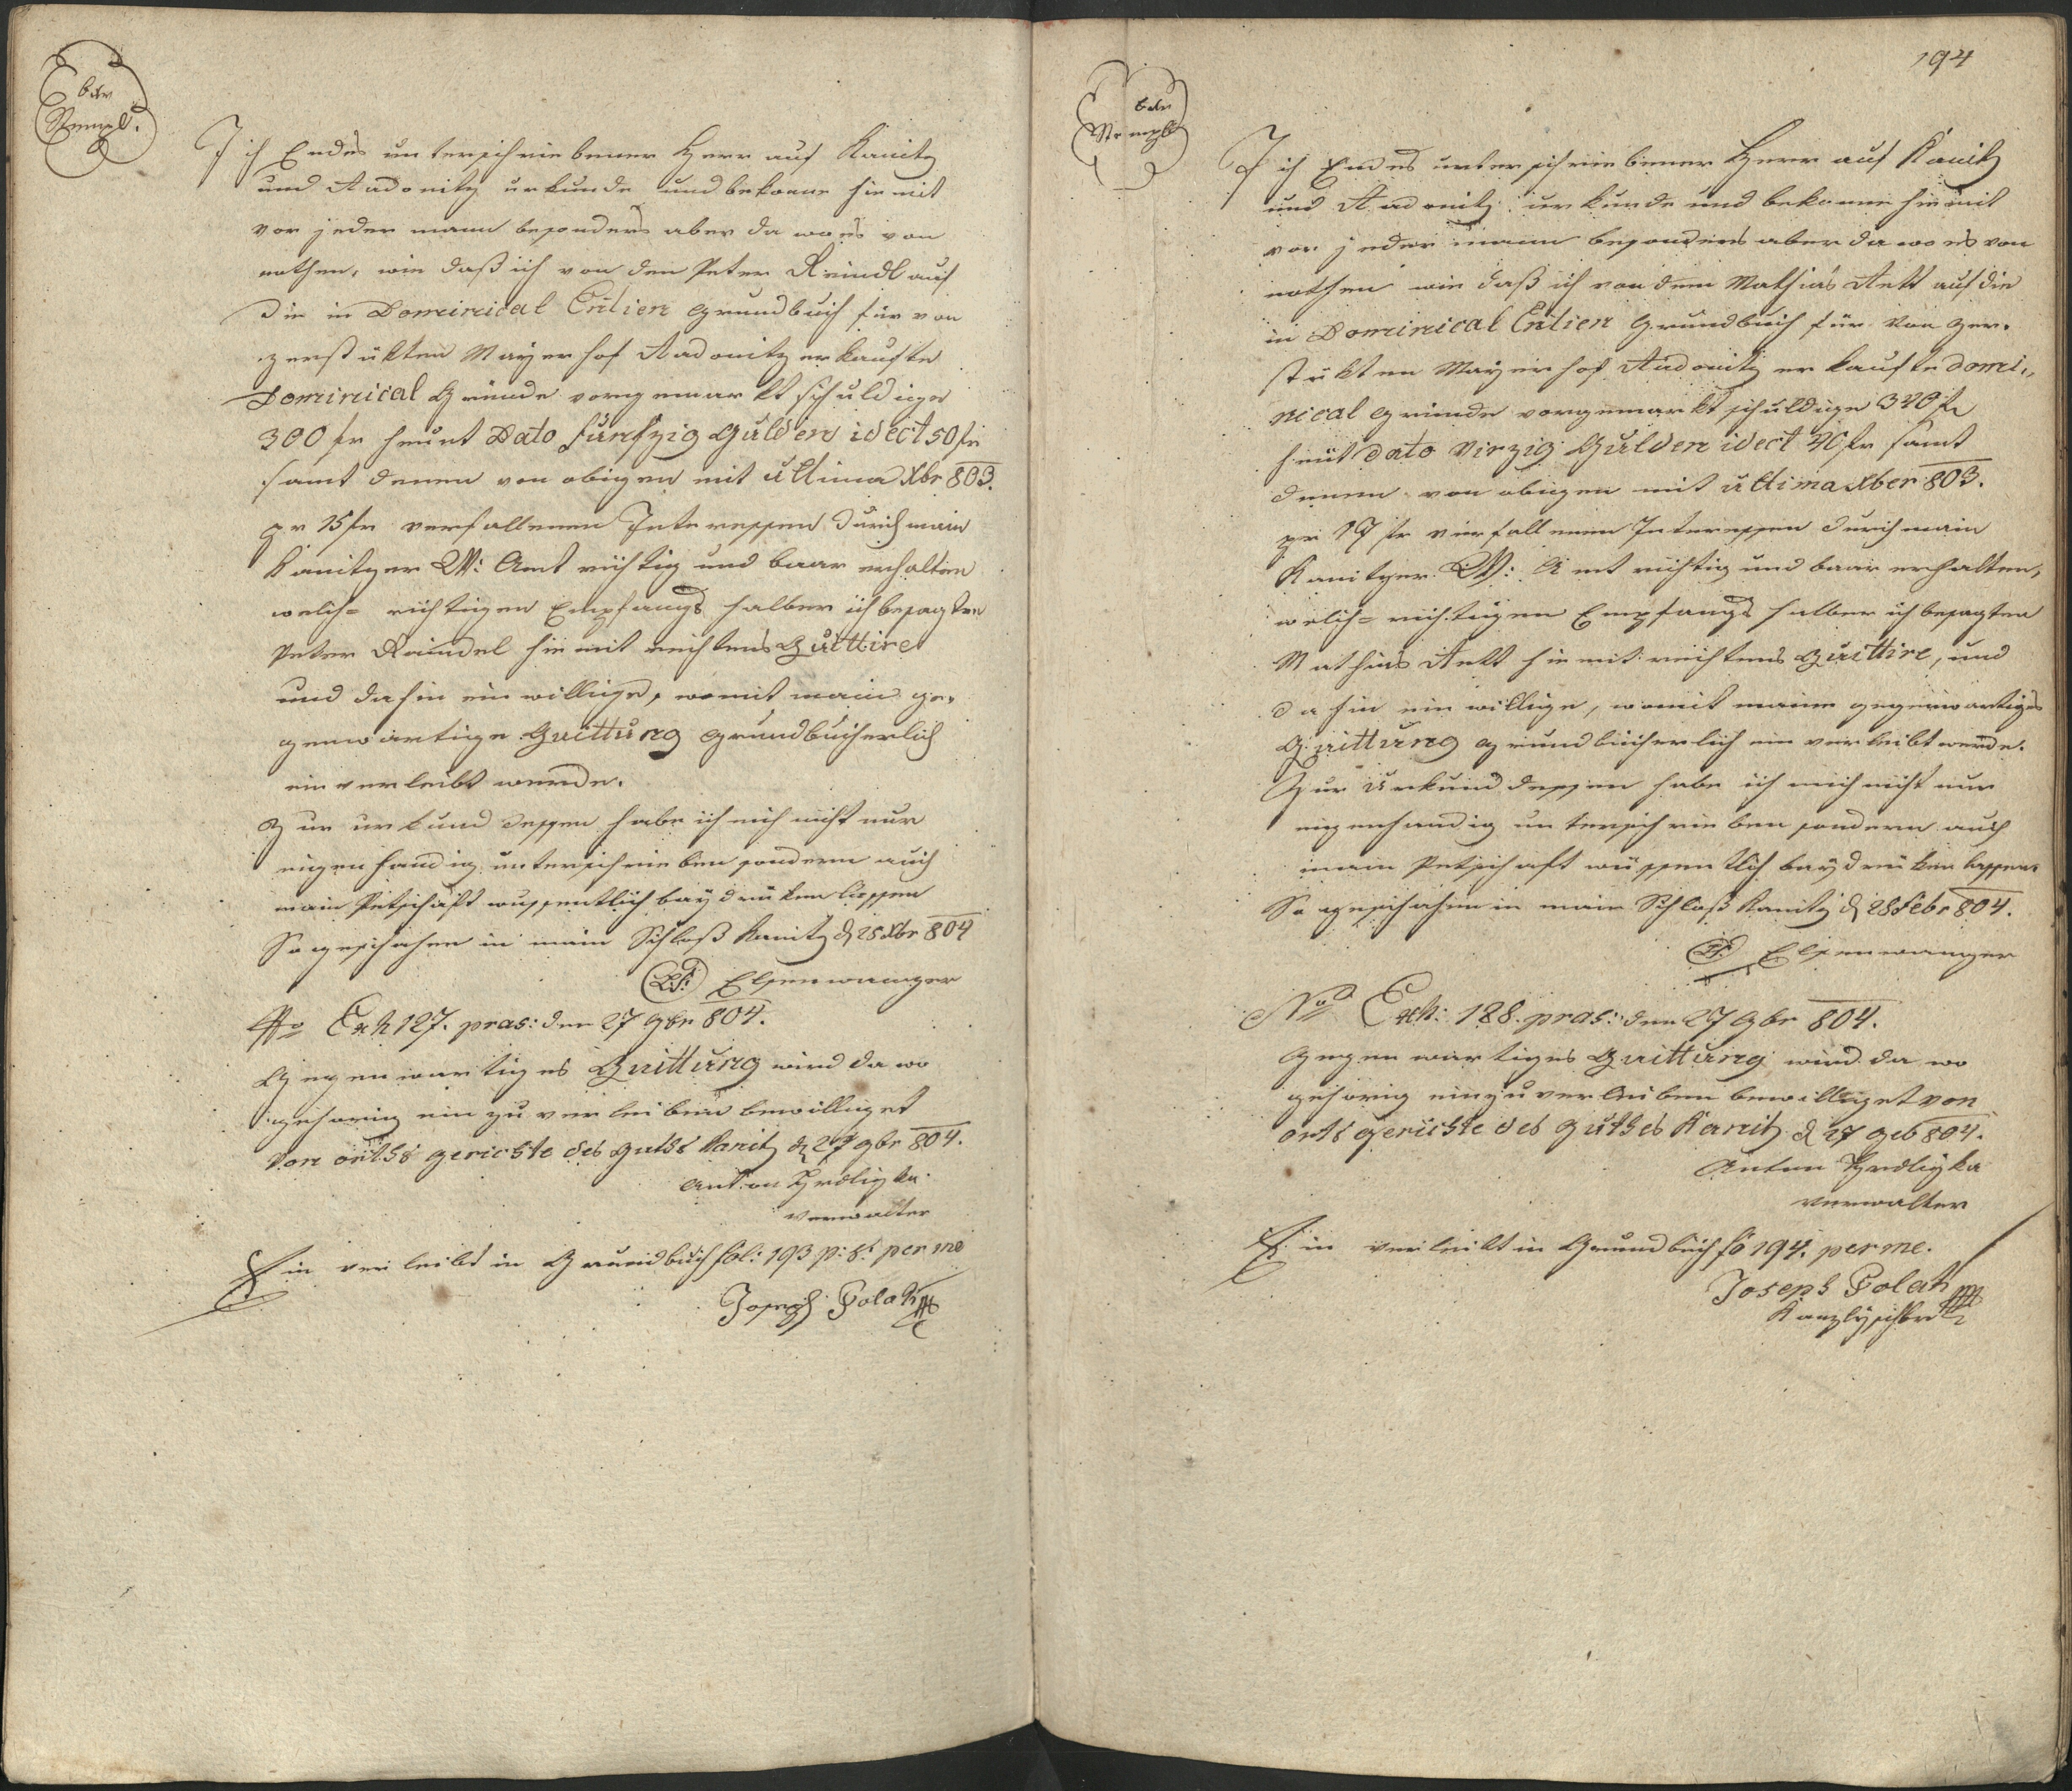 6 xr
Stempl.
Ich Endes unterschriebener Herr auf Kanitz
und Aadonitz urkunde und bekenne hiemit
vor jeder mann besonders aber da wo es von
nothen, wie daß ich von den Peter Reindl auf
die in Dominical Entien Grundbuch für von
zerstükten Mayerhof Aadonitz erkaufte
Dominical Gründe vorgemarkt schuldige
300 fr heunt Dato fünfzig Gulden idest 50 fr
samt denen von obigen mit ultima Xbr 803.
pr 15 fr verfallenen Interessen durch mein
Kanitzer W: Amt richtig und baar erhalten
welch= richtigen Empfangs halber ich besagten
Peter Raindel hiemit rechtens Quittire
und dahin ein willige, womit meine ge,
genwärtige Quittung grundbücherlich
ein verleibt werde.
Zur urkund dessen habe ich mich nicht nur
eigenhandig unterschrieben sondern auch
mein Petschaft wissentlich beydruken liessen
So geschehen in mein Schloß Kanitz d 28 Xbr 804
L.S. Elsenwanger
No Exh 127. pras: den 27 9br 804.
Gegenwartiges Quittung wird da wo
gehorig ein zu verleiben bewilliget
Von orths gerichte des guths Kanitz d 27 9br 804.
Anton Hrdliczka
Verwalter
Ein verleibt in Grundbuch fol: 193 p: s: per me
Joseph Polak
194
6 xr
Stempl
Ich Endes unterschriebener Herr auf Kanitz
und Aadonitz urkunde und bekenne hiemit
vor jeder mann besonders aber da wo es von
nothen wie daß ich von dem Mathias Antt auf die
in Dominical Entien Grundbuch für von zer,
stükten Mayerhof Aadonitz erkaufte domi,,
nical Gründe vorgemarkt schuldige 340 fr
heut dato Virzig Gulden idest 40 fr samt
denen von obigen mit ultima Xber 803.
pr 17 fr verfallenen Interessen durch mein
Kanitzer W: Amt richtig und baar erhalten,
welch= richtigen Empfangs halber ich besagten
Mathias Antt hiemit rechtens Quittire, und
dahin ein willige, womit meine gegenwartiges
Quittung grundbücherlich ein verleibt werde.
Zur Urkund dessen habe ich mich nicht nur
eigenhandig unterschrieben sondern auch
mein Petschaft wissentlich beydruken lassen.
So geschehen in mein Schloß Kanitz d 28 Febr 804.
L.S. Elsenwanger
No Exh: 128. pras: den 27 9br 804.
Gegenwartiges Quittung wird da wo
gehorig einzuverleiben bewilliget von
orts gerichte des guthes Kanitz d 27 9br 804.
Anton Hrdliczka
Verwalter
Ein verleibt in Grundbuch fo 194. per me.
Joseph Polak
Kanzleyschbr